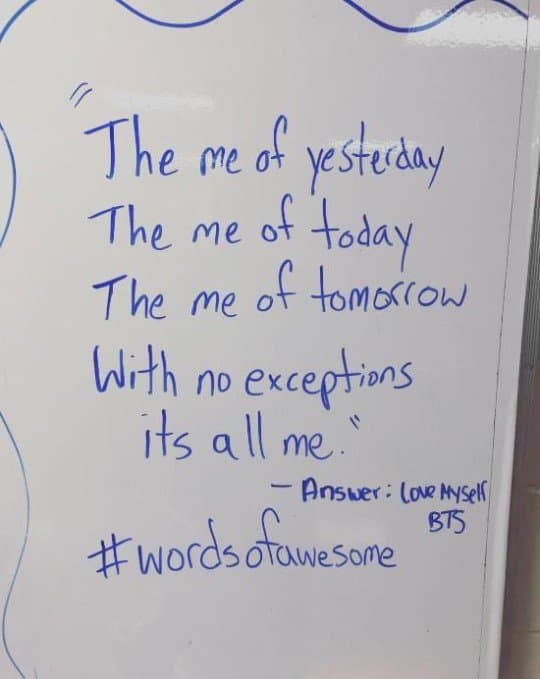 "The me of yesterday
The me of today
The me of tomorrow
With no exceptions
its all me."
- Answer: Love Myself
BTS
#wordsofawesome